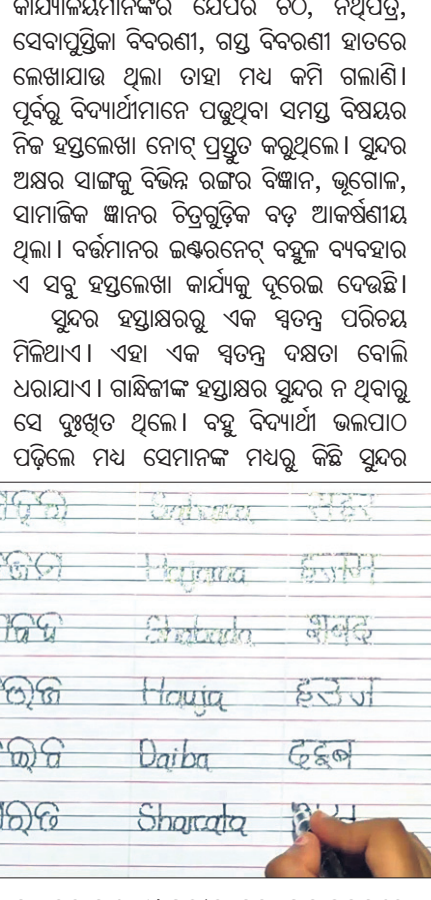 କାର୍ଯ୍ୟାଳୟମାନଙ୍କର ଯେପରି ଚିଠି, ନଥିପତ୍ର,
ସେବାପୁସ୍ତିକା ବିବରଣୀ, ଗସ୍ତ ବିବରଣୀ ହାତରେ
ଲେଖାଯାଉ ଥିଲା ତାହା ମଧ୍ୟ କମି ଗଲାଣି।
ପୂର୍ବରୁ ବିଦ୍ୟାର୍ଥୀମାନେ ପଢୁଥିବା ସମସ୍ତ ବିଷୟର
ନିଜ ହସ୍ତଲେଖା ନୋଟ୍ ପ୍ରସ୍ତୁତ କରୁଥିଲେ। ସୁନ୍ଦର
ଅକ୍ଷର ସାଙ୍ଗକୁ ବିଭିନ୍ନ ରଙ୍ଗର ବିଜ୍ଞାନ, ଭୂଗୋଳ,
ସାମାଜିକ ଜ୍ଞାନର ଚିତ୍ରଗୁଡ଼ିକ ବଡ଼ ଆକର୍ଷଣୀୟ
ଥିଲା। ବର୍ତ୍ତମାନର ଇଣ୍ଟରନେଟ୍ ବହୁଳ ବ୍ୟବହାର
ଏ ସବୁ ହସ୍ତଲେଖା କାର୍ଯ୍ୟକୁ ଦୂରେଇ ଦେଉଛି।
ସୁନ୍ଦର ହସ୍ତାକ୍ଷରରୁ ଏକ ସ୍ୱତନ୍ତ୍ର ପରିଚୟ
ମିଳିଥାଏ। ଏହା ଏକ ସ୍ୱତନ୍ତ୍ର ଦକ୍ଷତା ବୋଲି
ଧରାଯାଏ। ଗାନ୍ଧିଜୀଙ୍କ ହସ୍ତାକ୍ଷର ସୁନ୍ଦର ନ ଥିବାରୁ
ସେ ଦୁଃଖିତ ଥିଲେ। ବହୁ ବିଦ୍ୟାର୍ଥୀ ଭଲପାଠ
ପଢ଼ିଲେ ମଧ୍ୟ ସେମାନଙ୍କ ମଧ୍ୟରୁ କିଛି ସୁନ୍ଦର
Shabada शबद
Hauja हउज
Daiba दइब
Sharata